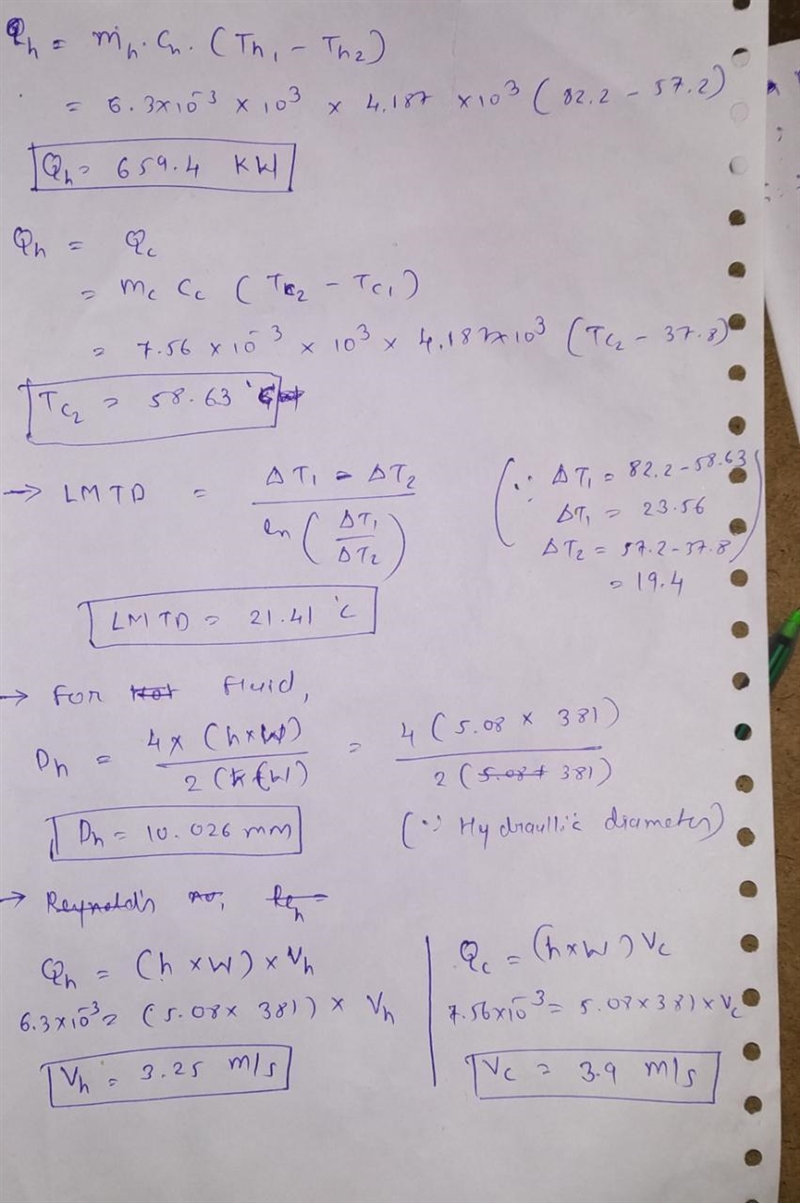 Qh = ṁh . Ch . (Th1 - Th2)
= 6.3×10^-3 × 10^3 × 4.187 ×10^3 (82.2 - 57.2)
Qh = 659.4 KW
Qh = Qc
= mc Cc (Tc2 - Tc1)
= 7.56 × 10^-3 × 10^3 × 4.187×10^3 (Tc2 - 37.8)
Tc2 = 58.63 °C
→ LMTD = ΔT1 - ΔT2 / ln (ΔT1 / ΔT2)
(∵ ΔT1 = 82.2 - 58.63
ΔT1 = 23.56
ΔT2 = 57.2 - 37.8)
= 19.4
LMTD = 21.41 °C
→ For Hot fluid,
Dh = 4 × (h×W) / 2 (h+W) = 4 (5.08 × 381) / 2 (5.08 + 381)
Dh = 10.026 mm
(∵ Hydraullic diameter)
→ Reynold's no, Reh =
Qh = (h × W) × Vh
6.3×10^-3 = (5.08 × 381) × Vh
Vh = 3.25 m/s
Qc = (h×W) Vc
7.56×10^-3 = 5.08×381 × Vc
Vc = 3.9 m/s